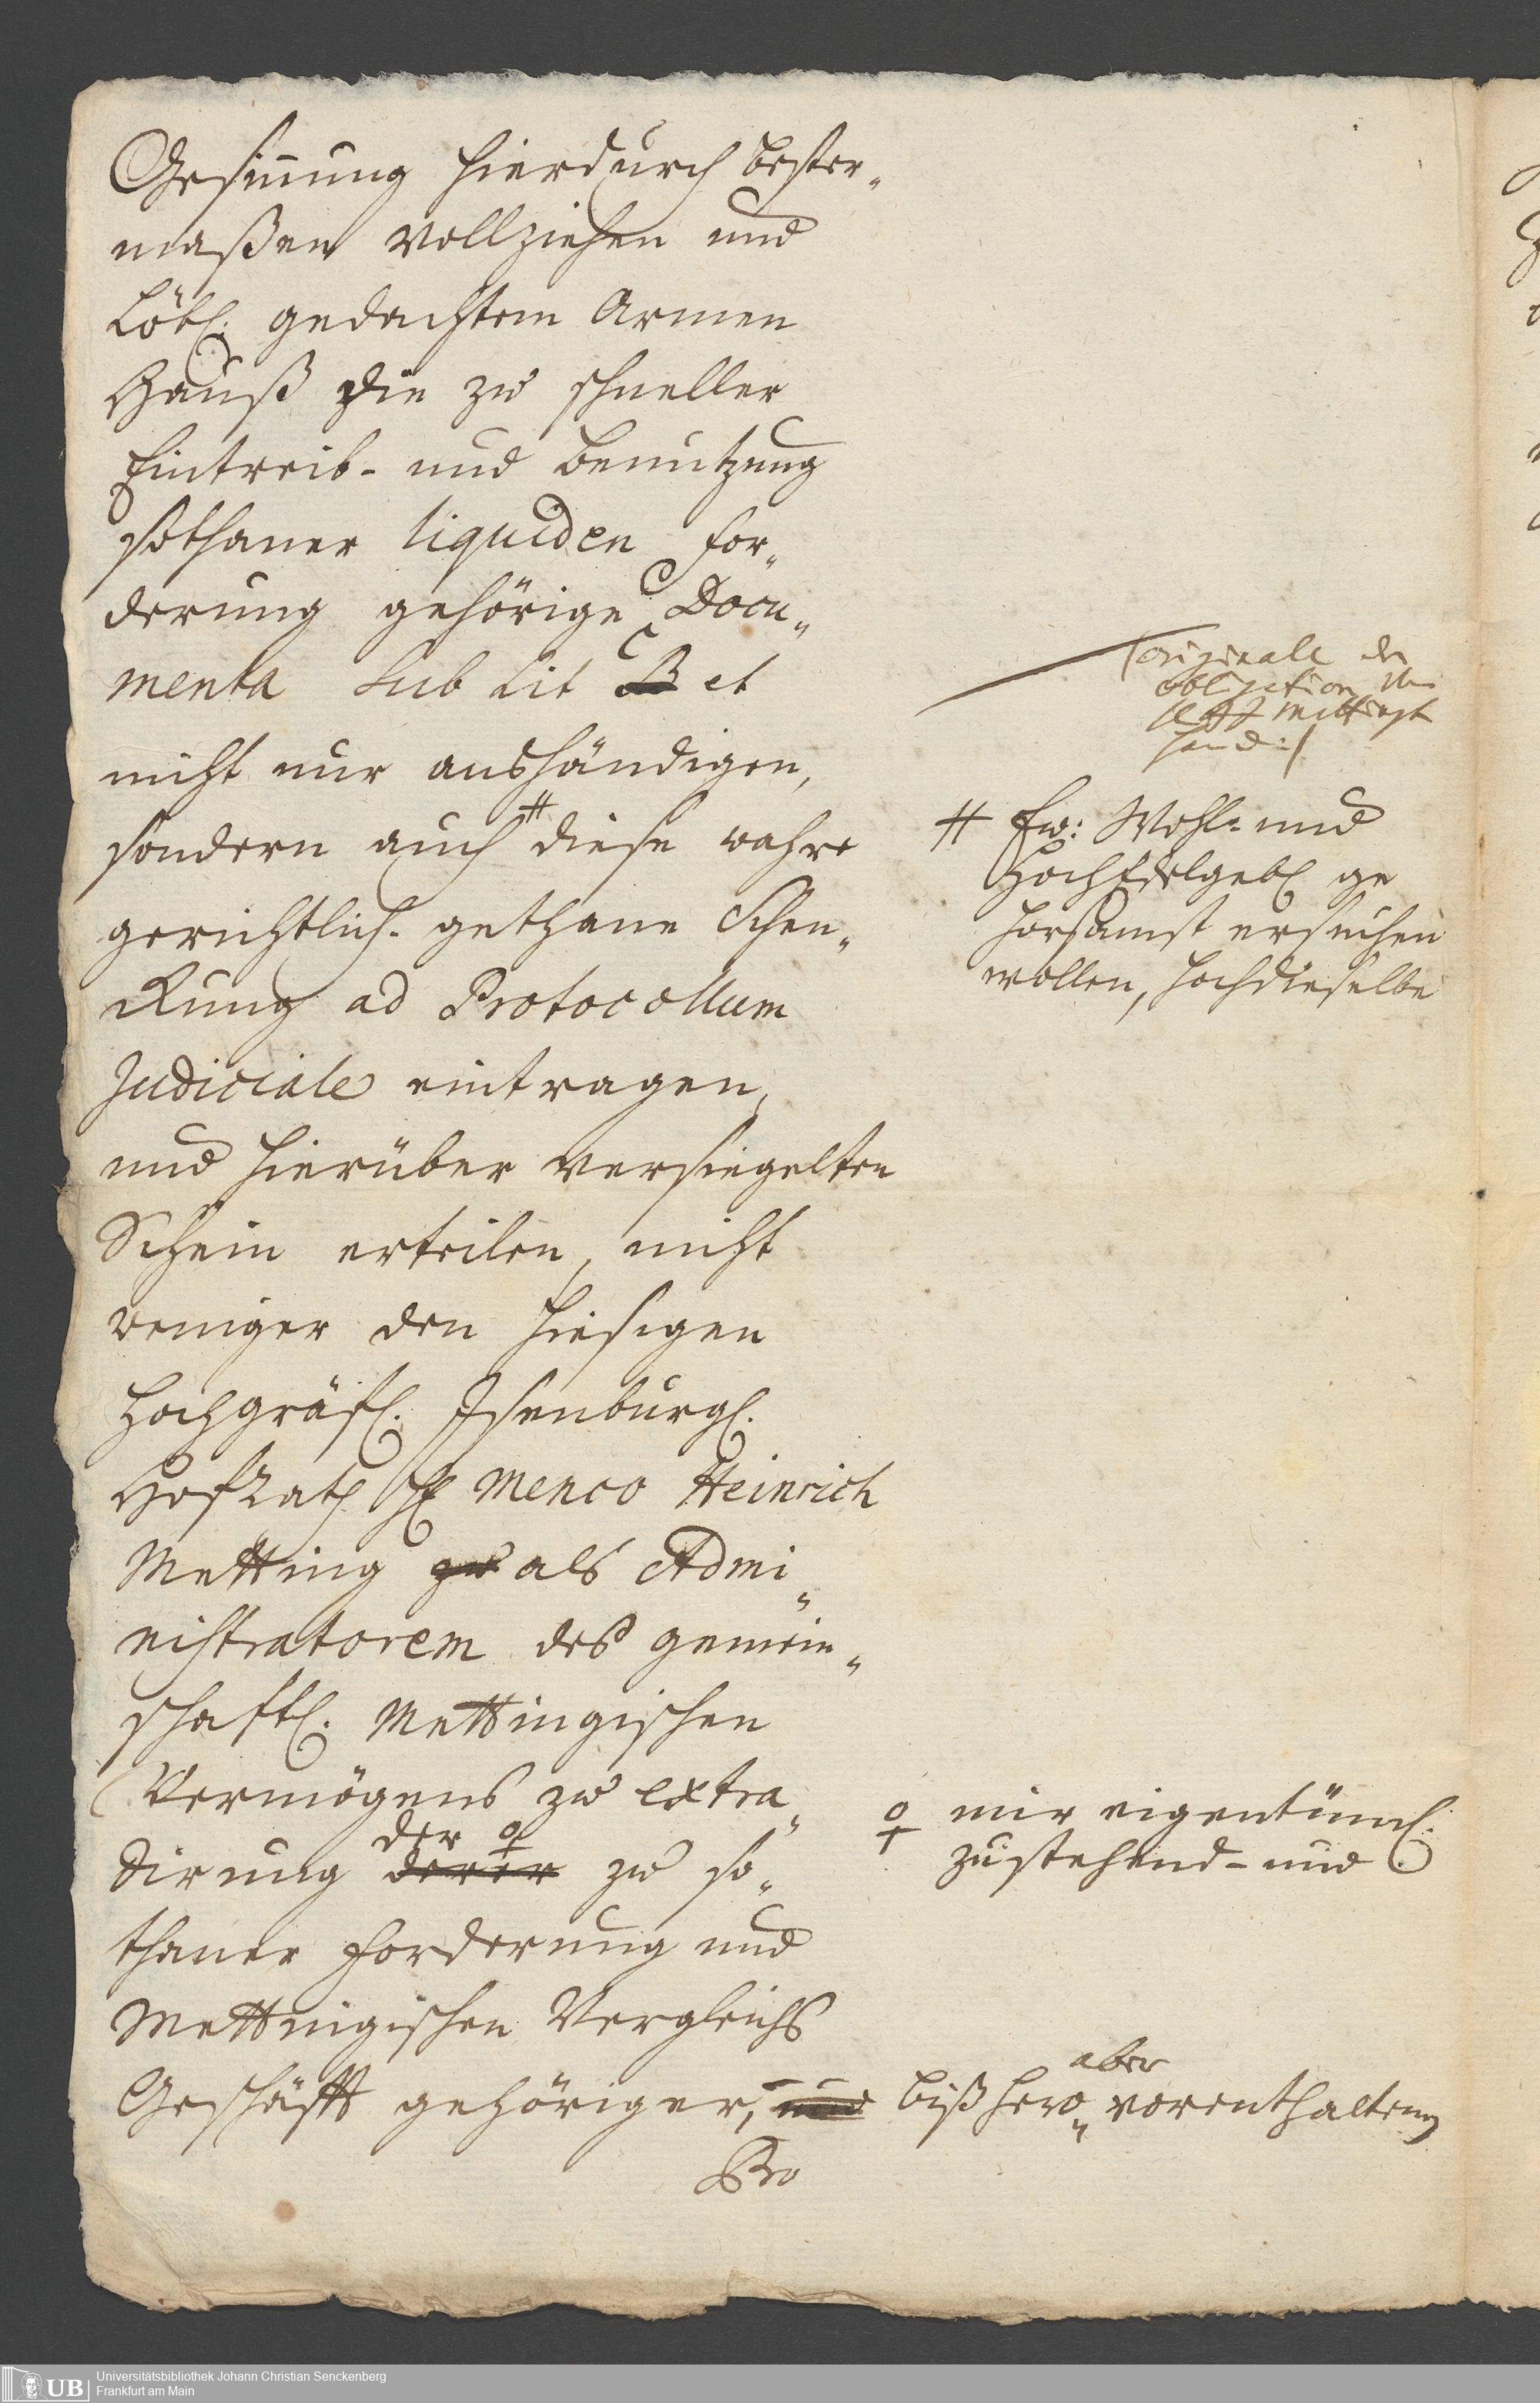 Gesinnung hierdurch bester„
maßen vollziehen und
Löbl. gedachtem Armen
Hauß die zu schneller
Eintreib- und Benutzung
sothaner liquiden For„
derung gehörige Docu„
menta sub Lit C B et
nicht nur aushändigen,
sondern auch # diese wahre
gerichtlich. gethane Schen„
kung ad Protocollum
Judiciale eintragen,
und hierüber versiegelten
Schein erteilen, nicht
weniger den hiesigen
Hochgräfl. Isenburgl.
HofRath H Menco Heinrich
Metting zu als Admi„
nistratorem des gemein„
schaftl. Mettingischen
Vermögens zu extra„
der ♀
dirung derer zu so„
thaner Forderung und
Mettingischen Vergleichs
Geschäfft gehöriger, und bißhero„ aber vorenthaltenen
Bro
originale der
obligation
hand:/
# Ew: Wohl- und
HochEdelgebl ge
horsamst ersuchen
wollen, hochdieselbe
♀ mir eigentüml.
zustehend- und
Universitätsbibliothek Johann Christian Senckenberg
Frankfurt am Main
UB